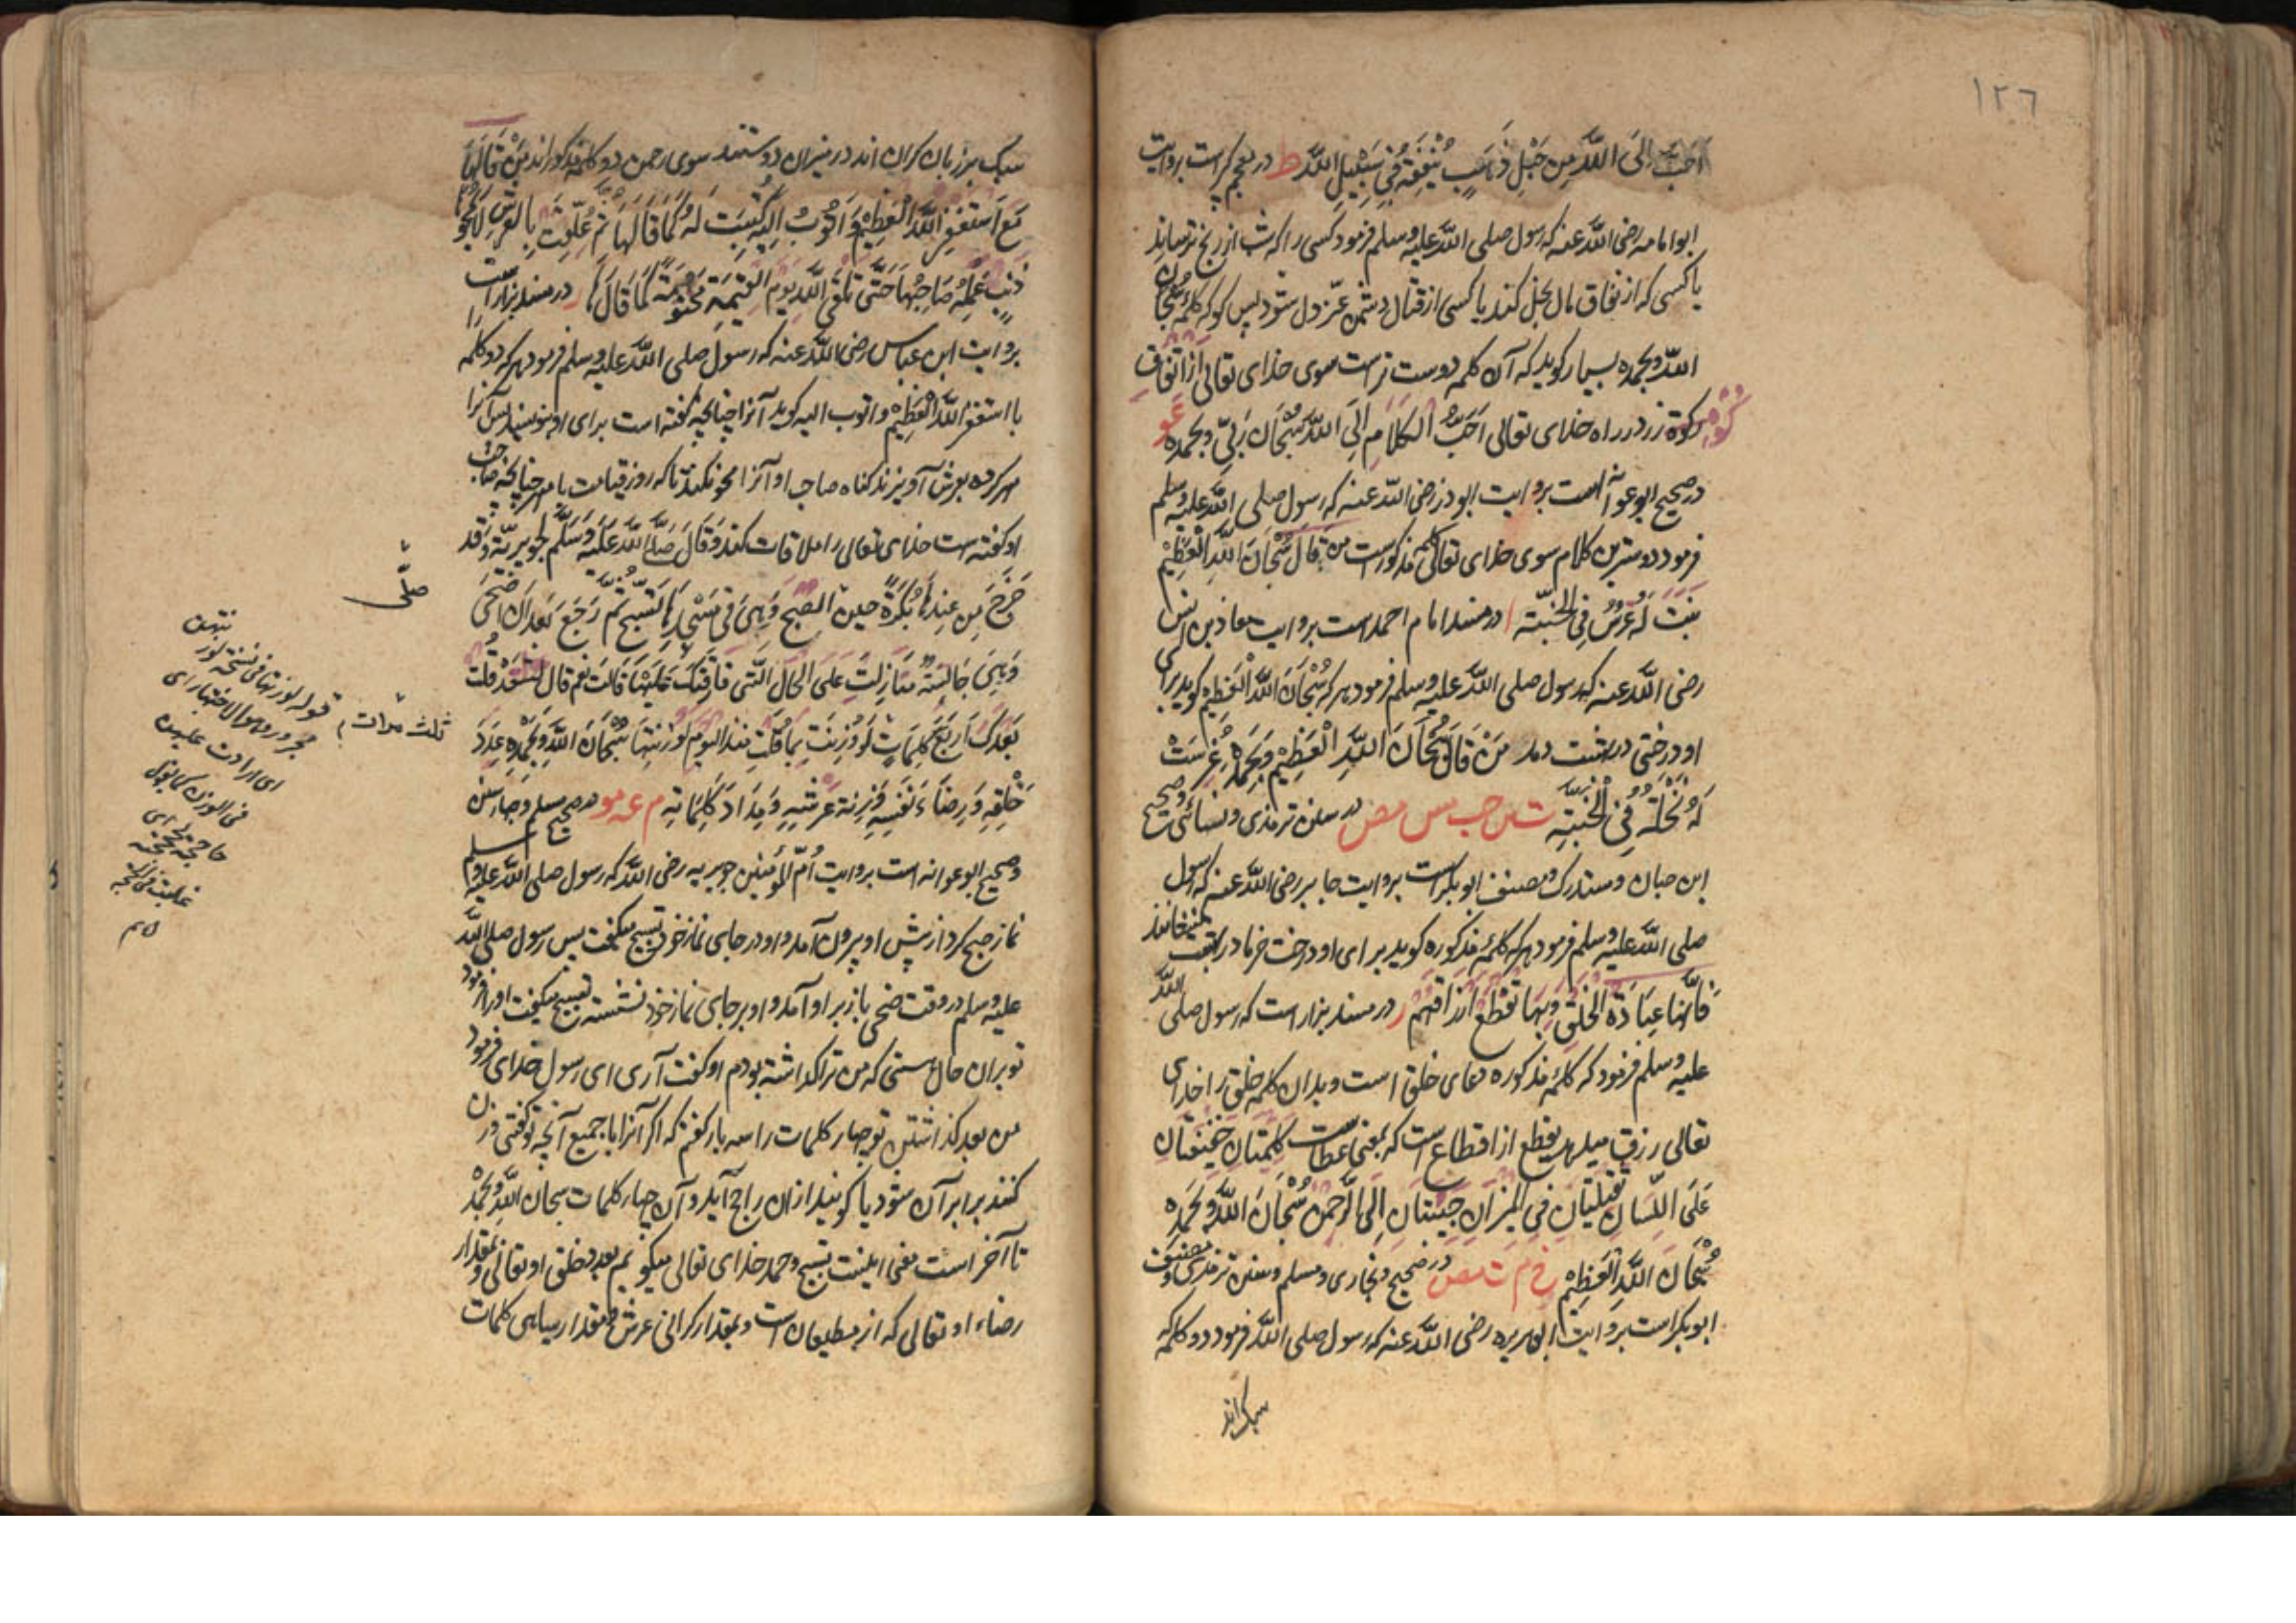 ١٢٦
احب الی اللّه من جبل ذهب ینفقه فی سبیل اللّه ط در معجم کبیر است بروایت
ابوامامه رضی اللّه عنه که رسول صلی اللّه علیه وسلم فرمود کسی را که شب از رنج ترساند
یا کسی که از نفاق مال بخل کند یا کسی از قتال دشمن عز دل شود پس کو که کلمه سبحان
اللّه وبحمده بسیار کوید که آن کلمه دوست تر است سوی خدای تعالی از انفاق
کوه زر در راه خدای تعالی اَحَبُّ الکلام اِلَی اللّه سُبْحَانَ رَبِّی وبحمده عو
در صحیح ابوعوانه است بروایت ابوذر رضی اللّه عنه که رسول صلی اللّه علیه وسلم
فرمود دوسترین کلام سوی خدای تعالی کلمه مذکور است من قَالَ سُبْحَانَ اللّهِ الْعَظِیْمِ
نَبَتَ لَهُ غَرْسٌ فِی الْجَنَّةِ ا در مسند امام احمد است بروایت معاذ بن انس
رضی اللّه عنه که رسول صلی اللّه علیه وسلم فرمود هر که سُبْحَانَ اللّهِ الْعَظِیْم کوید برای
او درختی در بهشت دمد مَنْ قَالَ سُبْحَانَ اللّهِ الْعَظِیْمِ وَبِحَمْدِهِ غُرِسَتْ
لَهُ نَخْلَةٌ فِی الْجَنَّةِ ت س حب مس مص در سنن ترمذی ونسائی وصحیح
ابن حبان ومستدرک ومصنف ابوبکر است بروایت جابر رضی اللّه عنه که رسول
صلی اللّه علیه وسلم فرمود هر که کلمه مذکوره کوید برای او درخت خرما در بهشت
فَاِنَّهَا عِبَادَةُ الْخَلْقِ وَبِهَا تُقْطَعُ اَرْزَاقُهُمْ ر در مسند بزار است که رسول صلی اللّه
علیه وسلم فرمود که کلمه مذکوره دعای خلق است وبدان کلمه خلق را خدای
تعالی رزق میدهد یقطع از اقطاع است که بمعنی عطا است کَلِمَتَانِ خَفِیْفَتَانِ
عَلَی اللِّسَانِ ثَقِیْلَتَانِ فِی الْمِیْزَانِ حَبِیْبَتَانِ اِلَی الرَّحْمٰنِ سُبْحَانَ اللّهِ وَبِحَمْدِهِ
سُبْحَانَ اللّهِ الْعَظِیْمِ خ م ت مص در صحیح بخاری ومسلم وسنن ترمذی ومصنف
ابوبکر است بروایت ابوهریره رضی اللّه عنه که رسول صلی اللّه فرمود دو کلمه که
سبک اند
سبک بر زبان کران اند در میزان دوستند سوی رحمن دو کلمه مذکور اند مَنْ قَالَهَا
مَعَ اَسْتَغْفِرُ اللّهَ الْعَظِیْمَ وَاَتُوْبُ اِلَیْهِ کُتِبَتْ لَهُ کَمَا قَالَهَا ثُمَّ عُلِّقَتْ بِالْعَرْشِ لَا یَمْحُوْهَا
ذَنْبٌ عَمِلَهُ صَاحِبُهَا حَتّٰی یَلْقَی اللّهَ یَوْمَ الْقِیٰمَةِ مَخْتُوْمَةً کَمَا قَالَهَا ر در مسند بزار است
بروایت ابن عباس رضی اللّه عنه که رسول صلی اللّه علیه وسلم فرمود هر که دو کلمه
با استغفر اللّه العظیم واتوب الیه کوید آنرا چنانچه کفته است برای او نویسند پس آنرا
مهر کرده بعرش آویزند کناه صاحب او آنرا محو نکند تا که روز قیامت با مهر چنانچه صاحب
او کفته است خدای تعالی را ملاقات کند وَقَالَ صَلَّی اللّهُ عَلَیْهِ وَسَلَّمَ لِجُوَیْرِیَّةَ وَقَدْ
خَرَجَ مِنْ عِنْدِهَا بُکْرَةً حِیْنَ الصُّبْحِ وَهِیَ فِیْ مَسْجِدِهَا تُسَبِّحُ ثُمَّ رَجَعَ بَعْدَ اَنْ اَضْحٰی
وَهِیَ جَالِسَةٌ مَا زِلْتِ عَلَی الْحَالِ الَّتِیْ فَارَقْتُکِ عَلَیْهَا قَالَتْ نَعَمْ قَالَ لَقَدْ قُلْتُ
بَعْدَکِ اَرْبَعَ کَلِمَاتٍ لَوْ وُزِنَتْ بِمَا قُلْتِ مُنْذُ الْیَوْمِ لَوَزَنَتْهَا سُبْحَانَ اللّهِ وَبِحَمْدِهِ عَدَدَ
خَلْقِهِ وَرِضَاءَ نَفْسِهِ وَزِنَةَ عَرْشِهِ وَمِدَادَ کَلِمَاتِهِ م عه عو در صحیح مسلم وچهار سنن
وصحیح ابوعوانه است بروایت اُمّ المؤمنین جویریه رضی اللّه که رسول صلی اللّه علیه وسلم
نماز صبح کرد از پیش او بیرون آمد واو در جای نماز خود تسبیح میکفت پس رسول صلی اللّه
علیه وسلم در وقت ضحی باز بر او آمد واو بر جای نماز خود نشسته تسبیح میکفت اورا فرمود
تو بران حال هستی که من ترا کذاشته بودم او کفت آری ای رسول خدای فرمود
من بعد کذاشتن تو چهار کلمات را سه بار کفتم که اکر آنرا با جمیع آنچه تو کفتی وزن
کنند برابر آن شود یا کویند ازان راجح آید وآن چهار کلمات سبحان اللّه وبحمده
تا آخر است معنی اینست تسبیح وحمد خدای تعالی میکویم بعدد خلق او تعالی وبمقدار
رضاء او تعالی که از مطیعان است وبمقدار کرانی عرش وبمقدار سیاهی کلمات
صلّی
ثلث مرات